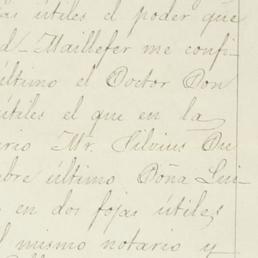 as útiles el poder que
d-Maillefer me confi-
último el Doctor Don
útiles el que en la
ario Mr. Silvius Du
bre último Doña Lui-
en dos fojas útiles
l mismo notario y